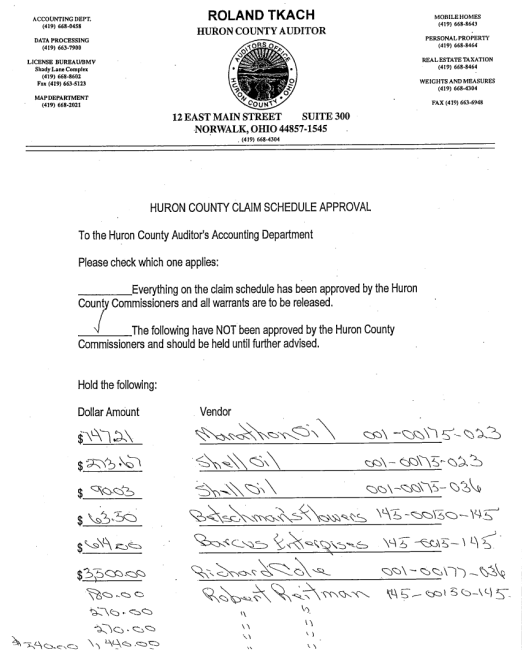 ACCOUNTING DEPT.
(419) 668-0458
DATA PROCESSING
(419) 663-7900
LICENSE BUREAU/BMV
Shady Lane Complex
(419) 668-8602
Fax (419) 663-5123
MAP DEPARTMENT
(419) 668-2021
ROLAND TKACH
HURON COUNTY AUDITOR
AUDITORS OFFICE
HURON COUNTY, OHIO
12 EAST MAIN STREET SUITE 300
NORWALK, OHIO 44857-1545
(419) 668-4304
MOBILE HOMES
(419) 668-8643
PERSONAL PROPERTY
(419) 668-8464
REAL ESTATE TAXATION
(419) 668-8464
WEIGHTS AND MEASURES
(419) 668-4304
FAX (419) 663-6948
HURON COUNTY CLAIM SCHEDULE APPROVAL
To the Huron County Auditor's Accounting Department
Please check which one applies:
Everything on the claim schedule has been approved by the Huron
County Commissioners and all warrants are to be released.
✓ The following have NOT been approved by the Huron County
Commissioners and should be held until further advised.
Hold the following:
Dollar Amount Vendor
$747.21 Marathon Oil 001-00175-023
$273.67 Shell Oil 001-00175-023
$90.03 Shell Oil 001-00175-036
$63.50 Betschman's Flowers 145-00150-145
Barcus Enterprises
$3500.00 Richard Cole 001-00177-036
180.00 Robert Reitman 145-00150-145
270.00 " "
270.00 " "
1,440.00 " "